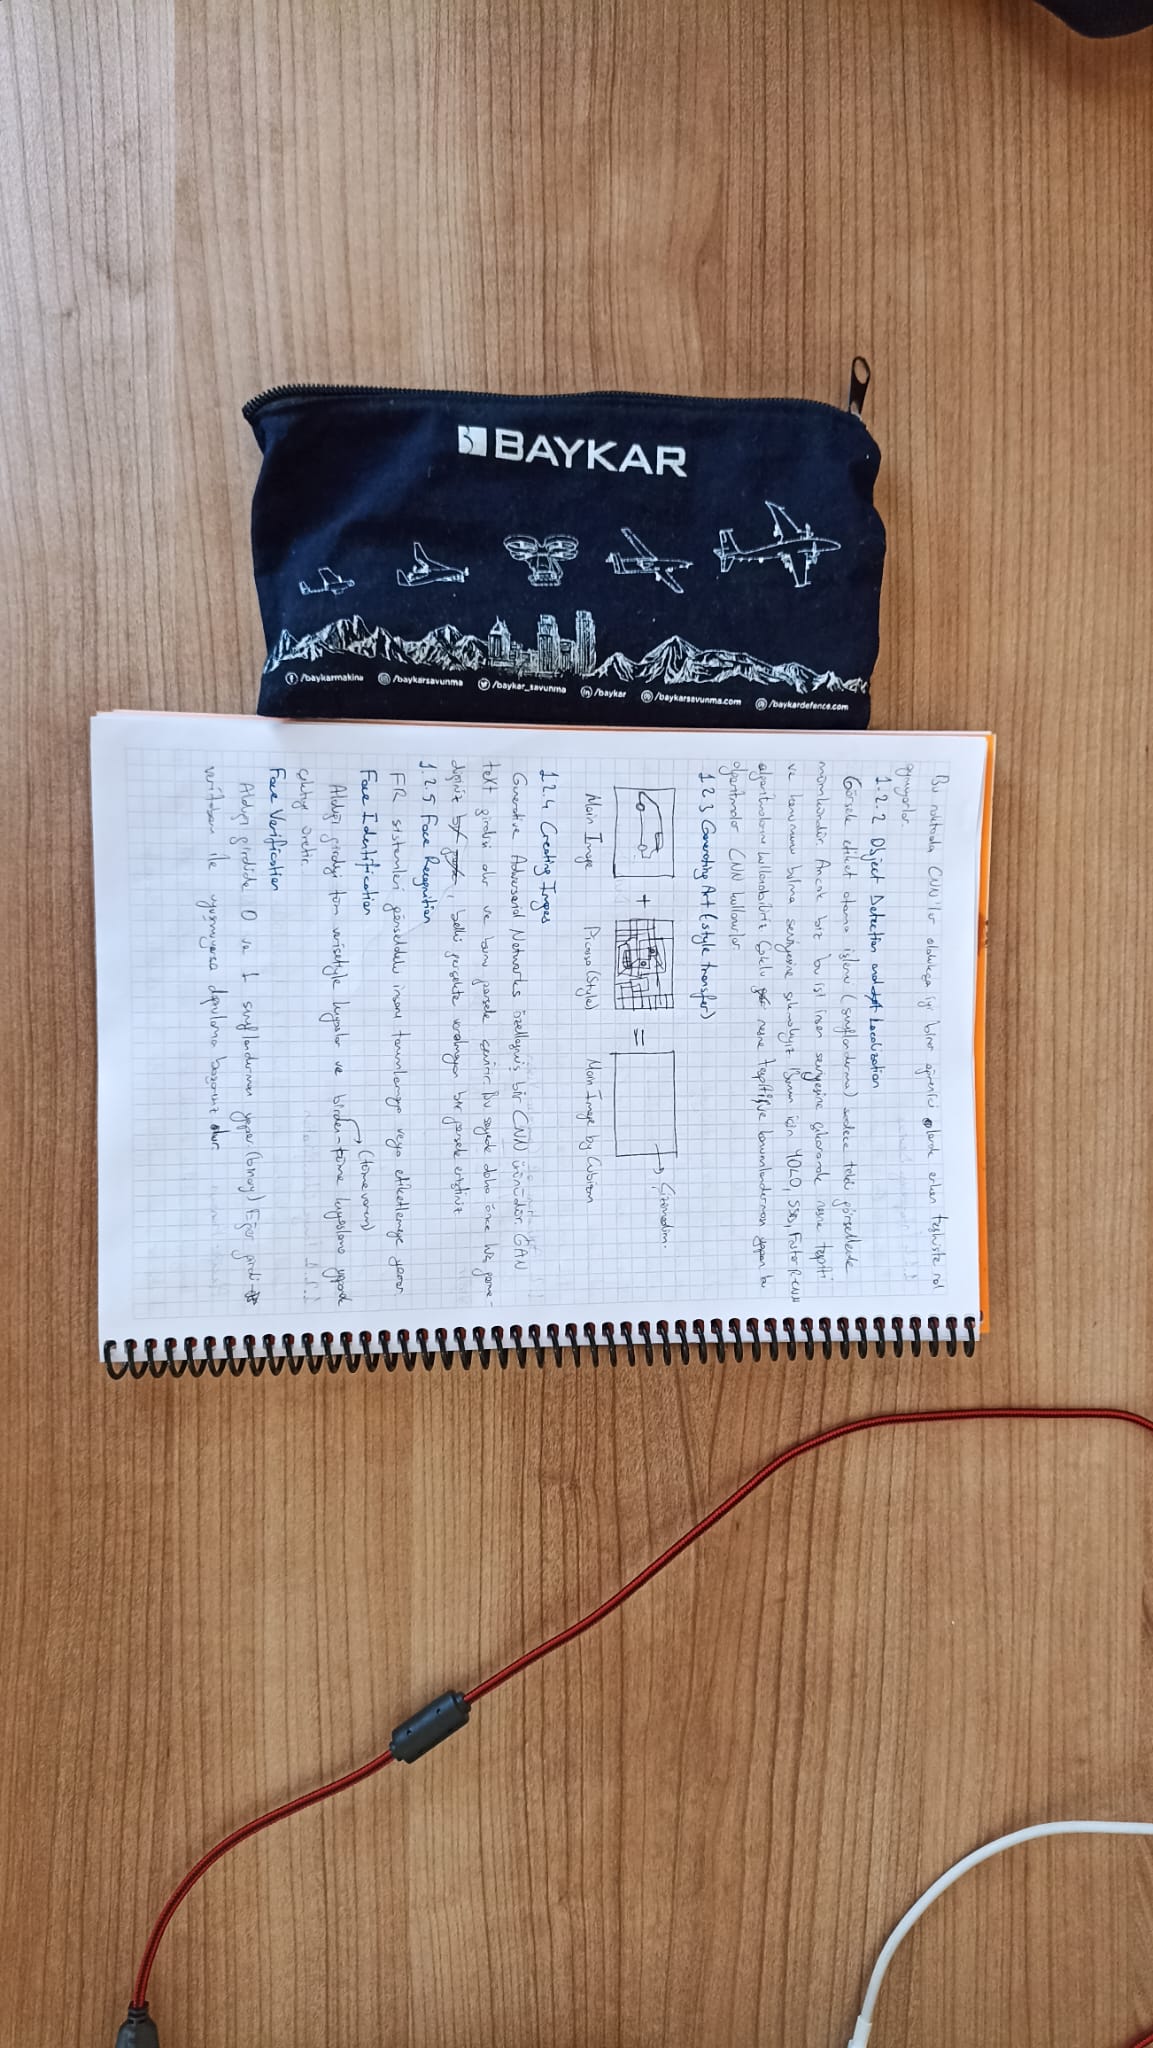 BAYKAR
/baykarmakina /baykarsavunma /baykar_savunma /baykar /baykarsavunma.com /baykardefence.com
Bu noktada CNN'ler oldukça iyi birer öğrenici olarak erken teşhiste rol
oynuyorlar.
1.2.2 Object Detection and Localization
Görsele etiket atama işlemi (sınıflandırma) sadece tekil görsellerde
mümkündür. Ancak biz bu işi insan seviyesine çıkararak nesne tespiti
ve konumunu bulma seviyesine çıkmalıyız. Bunun için YOLO, SSD, Faster R-CNN
algoritmalarını kullanabiliriz. Çoklu nesne tespiti ve konumlandırması yapan bu
algoritmalar CNN kullanırlar.
1.2.3 Generating Art (style transfer)
+ = → Çizemedim.
Main Image Picasso (Style) Main Image by Cubism
1.2.4 Creating Images
Generative Adversarial Networks özelleşmiş bir CNN ürünüdür. GAN
tekst girdisi alır ve bunu görsele çevirir. Bu sayede daha önce hiç görme-
diğiniz, belki gerçekte varolmayan bir görsele erişiriz.
1.2.5 Face Recognition
FR sistemleri görseldeki insanı tanımlamaya veya etiketlemeye yarar.
Face Identification
→ (tümevarım)
Aldığı girdiyi tüm verisetiyle kıyaslar ve birden-tüme kıyaslama yaparak
çıktıyı üretir.
Face Verification
Aldığı girdide 0 ve 1 sınıflandırması yapar. (binary) Eğer girdi
veritabanı ile uyuşmuyorsa doğrulama başarısız olur.